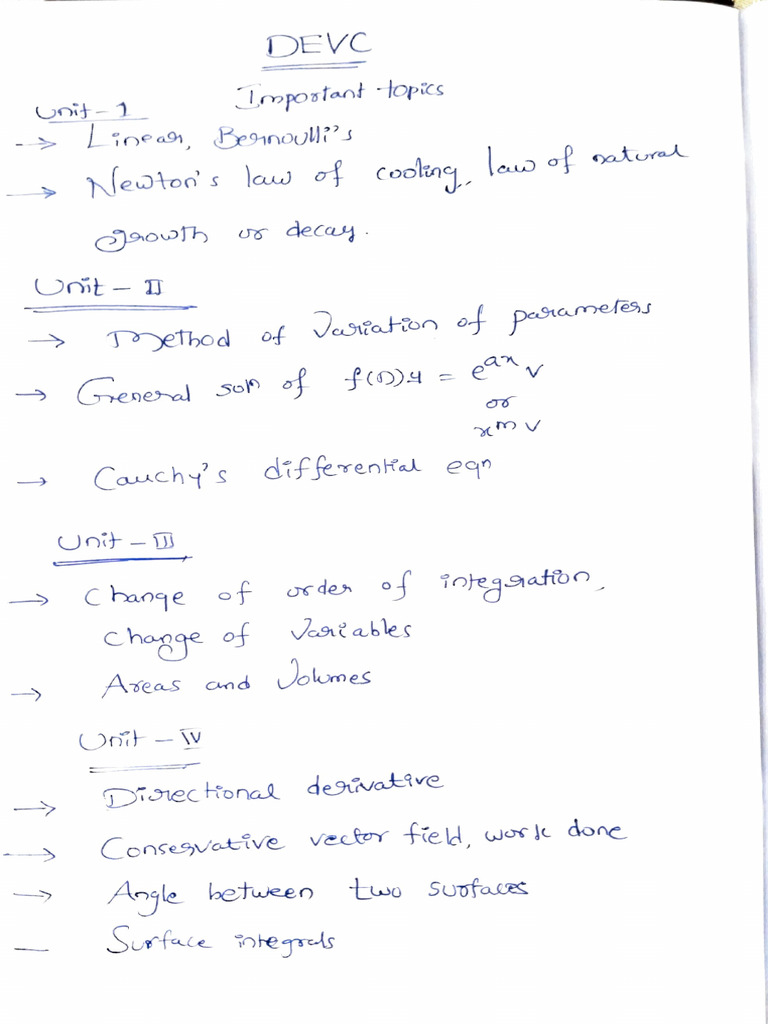 DEVC
Important topics
Unit - 1
→ Linear, Bernoulli's
→ Newton's law of cooling, law of natural
growth or decay.
Unit - II
→ Method of Variation of parameters
→ General soln of f(D)y = e^{ax} v
or
x^m v
→ Cauchy's differential eqn
Unit - III
→ Change of order of integration,
change of Variables
→ Areas and Volumes
Unit - IV
→ Directional derivative
→ Conservative vector field, work done
→ Angle between two surfaces
— Surface integrals